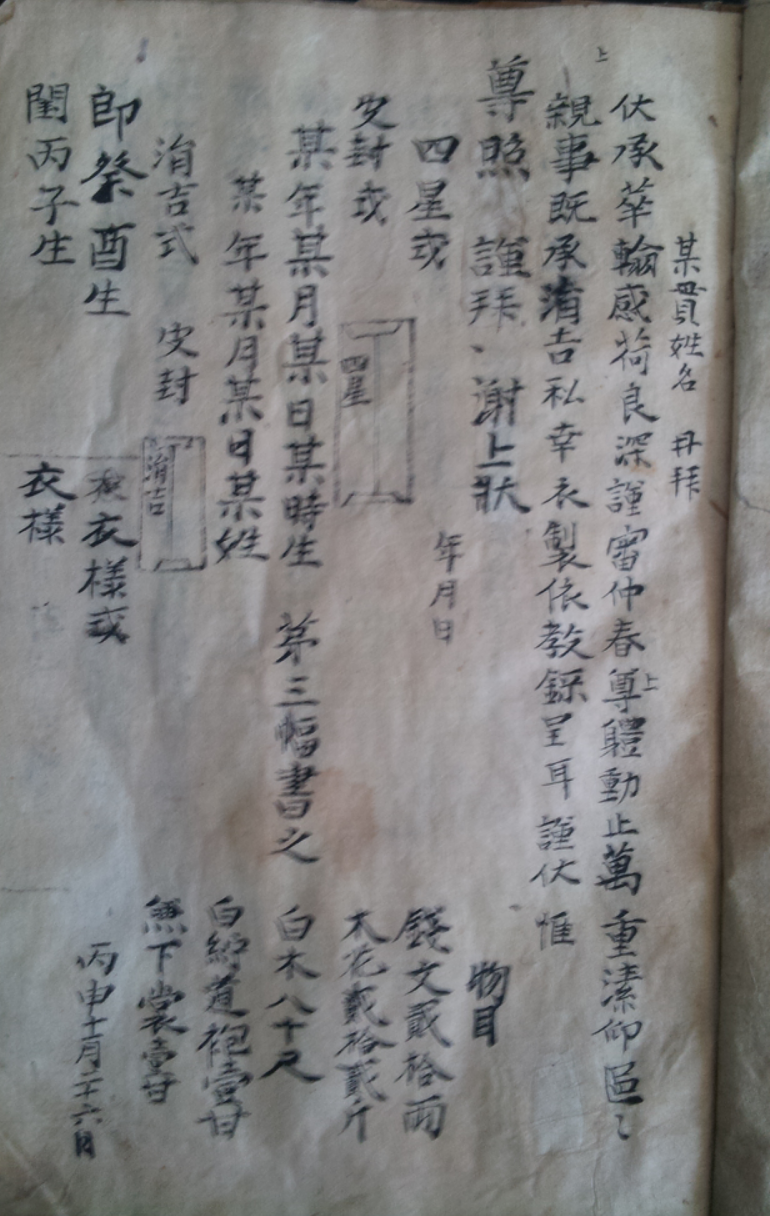 某貫姓名 再拜
伏承華翰感荷良深謹審仲春尊體動止萬重溸仰區〻
上
親事既承涓吉私幸衣製依教錄呈耳謹伏惟
上
尊照 謹拜、謝上狀
年月日
四星或
皮封或
四星
某年某月某日某時生 第三幅書之
某年某月某日某姓
涓吉式 皮封
涓吉
郎癸酉生
閨丙子生
衣樣或
衣樣
物目
錢文貳拾兩
木花貳拾貳斤
白木八十尺
白紬道袍壹甘
無下裳壹甘
丙申十月二十六日